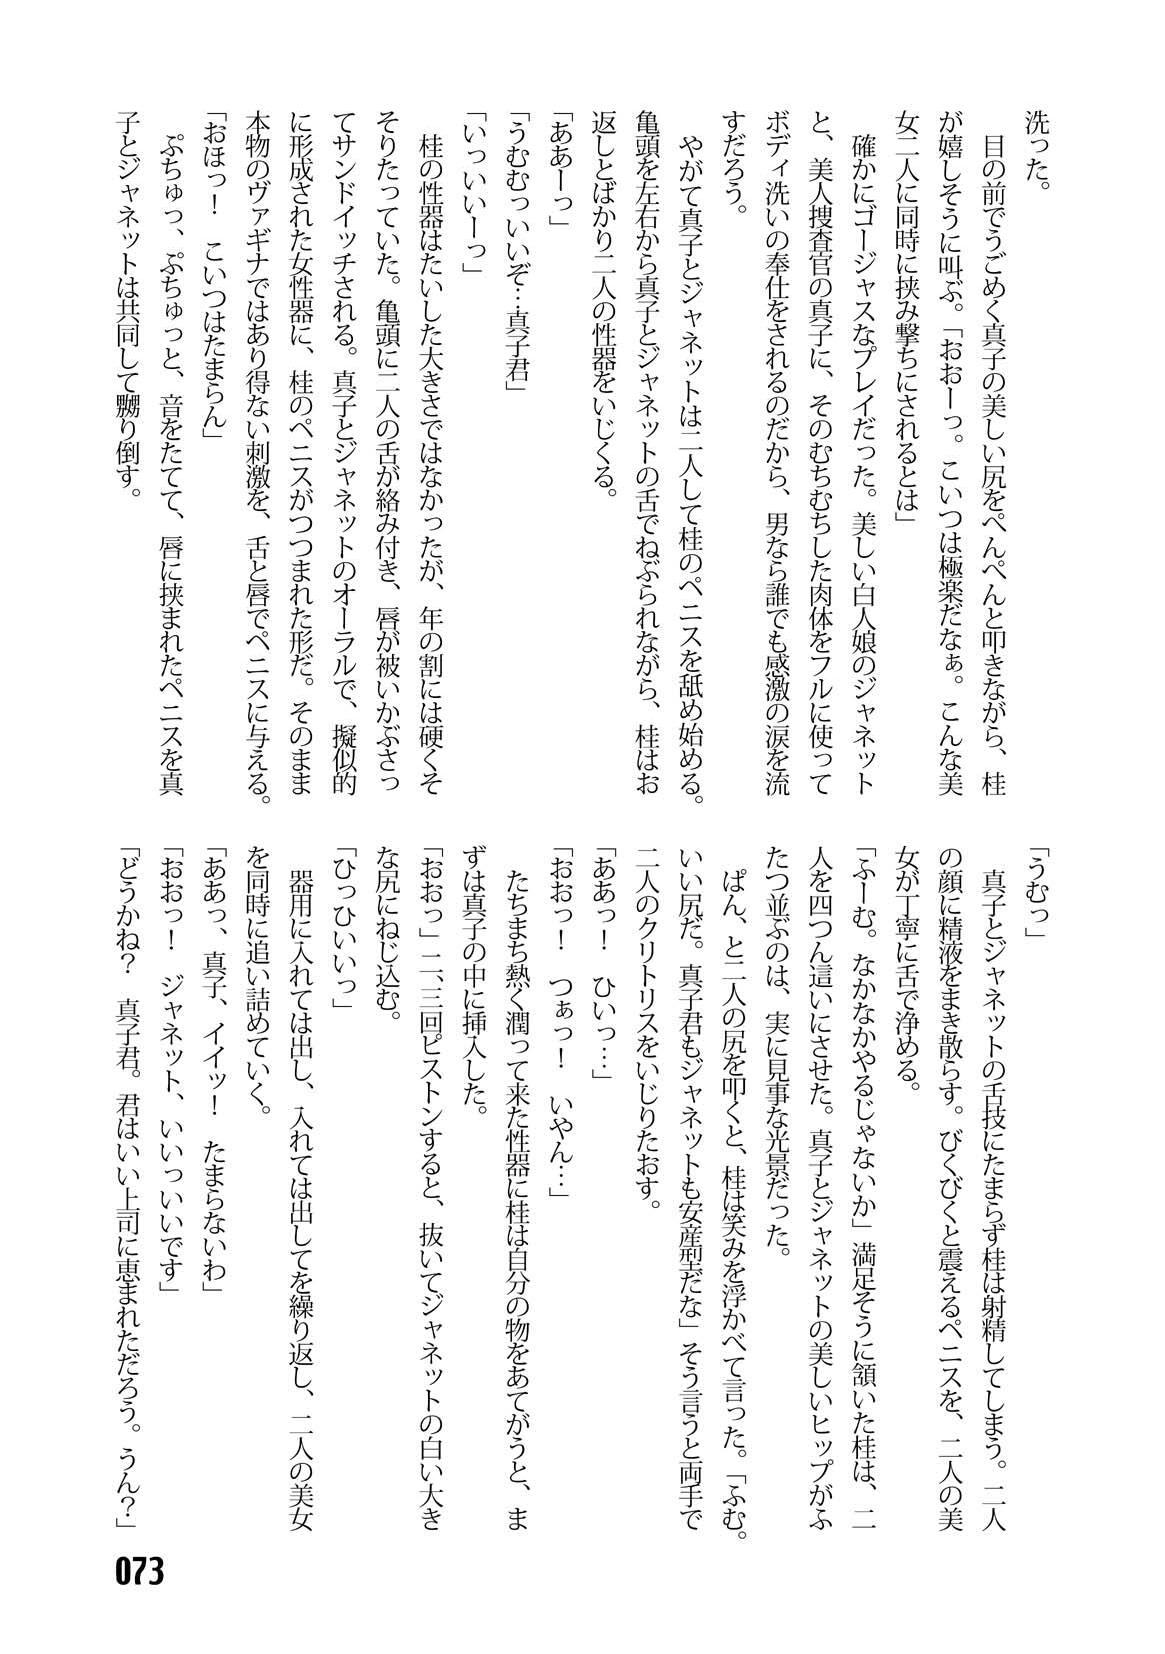 洗った。
　目の前でうごめく真子の美しい尻をぺんぺんと叩きながら、桂
が嬉しそうに叫ぶ。「おおーっ。こいつは極楽だなぁ。こんな美
女二人に同時に挟み撃ちにされるとは」
　確かにゴージャスなプレイだった。美しい白人娘のジャネット
と、美人捜査官の真子に、そのむちむちした肉体をフルに使って
ボディ洗いの奉仕をされるのだから、男なら誰でも感激の涙を流
すだろう。
　やがて真子とジャネットは二人して桂のペニスを舐め始める。
亀頭を左右から真子とジャネットの舌でねぶられながら、桂はお
返しとばかり二人の性器をいじくる。
「ああーっ」
「うむむっいいぞ…真子君」
「いっいいーっ」
　桂の性器はたいした大きさではなかったが、年の割には硬くそ
そりたっていた。亀頭に二人の舌が絡み付き、唇が被いかぶさっ
てサンドイッチされる。真子とジャネットのオーラルで、擬似的
に形成された女性器に、桂のペニスがつつまれた形だ。そのまま
本物のヴァギナではあり得ない刺激を、舌と唇でペニスに与える。
「おほっ！　こいつはたまらん」
　ぷちゅっ、ぷちゅっと、音をたてて、唇に挟まれたペニスを真
子とジャネットは共同して嬲り倒す。
「うむっ」
　真子とジャネットの舌技にたまらず桂は射精してしまう。二人
の顔に精液をまき散らす。びくびくと震えるペニスを、二人の美
女が丁寧に舌で浄める。
「ふーむ。なかなかやるじゃないか」満足そうに頷いた桂は、二
人を四つん這いにさせた。真子とジャネットの美しいヒップがふ
たつ並ぶのは、実に見事な光景だった。
　ぱん、と二人の尻を叩くと、桂は笑みを浮かべて言った。「ふむ。
いい尻だ。真子君もジャネットも安産型だな」そう言うと両手で
二人のクリトリスをいじりたおす。
「ああっ！　ひいっ…」
「おおっ！　つぁっ！　いやん…」
　たちまち熱く潤って来た性器に桂は自分の物をあてがうと、ま
ずは真子の中に挿入した。
「おおっ」二、三回ピストンすると、抜いてジャネットの白い大き
な尻にねじ込む。
「ひっひいいっ」
　器用に入れては出し、入れては出してを繰り返し、二人の美女
を同時に追い詰めていく。
「ああっ、真子、イイッ！　たまらないわ」
「おおっ！　ジャネット、いいっいいです」
「どうかね？　真子君。君はいい上司に恵まれただろう。うん？」
073